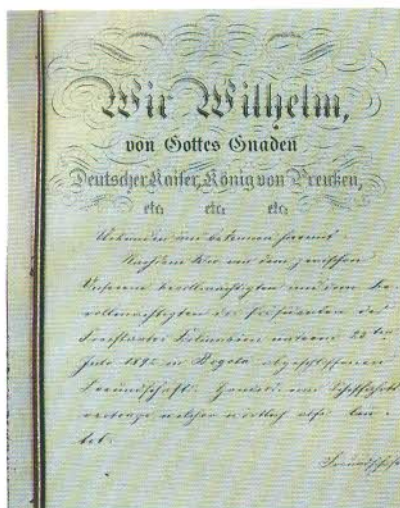 Wir Wilhelm,
von Gottes Gnaden
Deutscher Kaiser, König von Preußen,
etc. etc. etc.
Urkunden und bekennen hiermit
Nachdem Wir von dem zwischen
Unserem Bevollmächtigten und dem Be-
vollmächtigten des Präsidenten des
Freistaates Kolumbien unterm 23ten
Juli 1892 in Bogota abgeschlossenen
Freundschafts- Handels- und Schifffahrts-
vertrage welcher wörtlich also lau-
tet:
Freundschafts